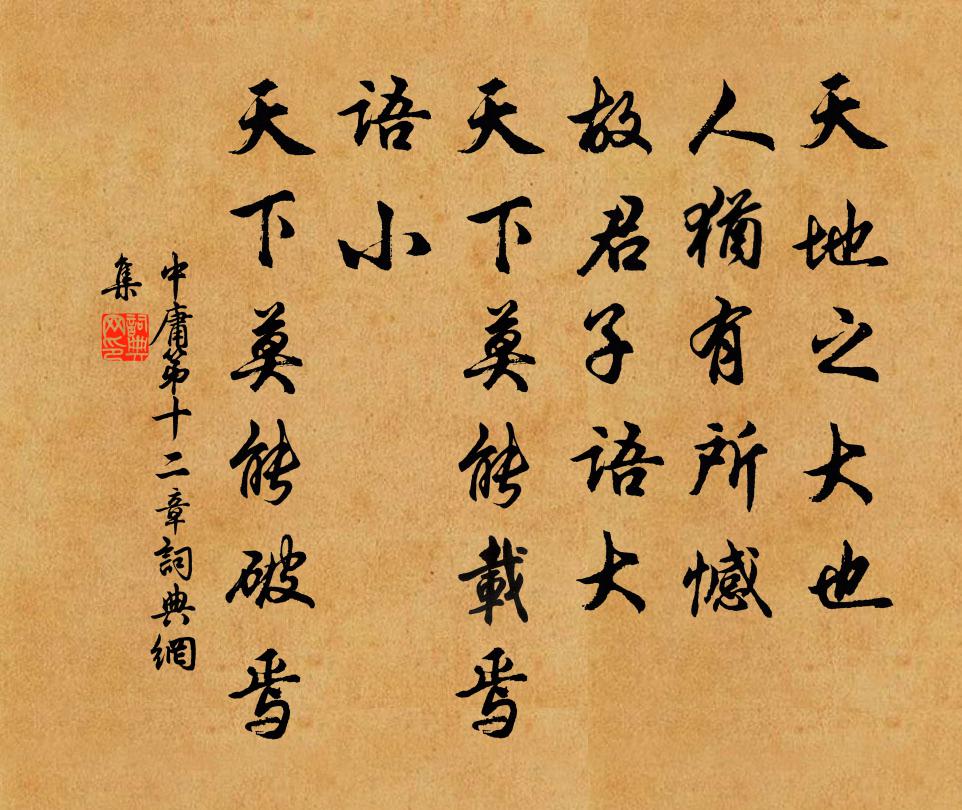 天地之大也
人猶有所憾
故君子語大
天下莫能載焉
語小
天下莫能破焉
中庸第十二章詞典網
集
詞典
网印